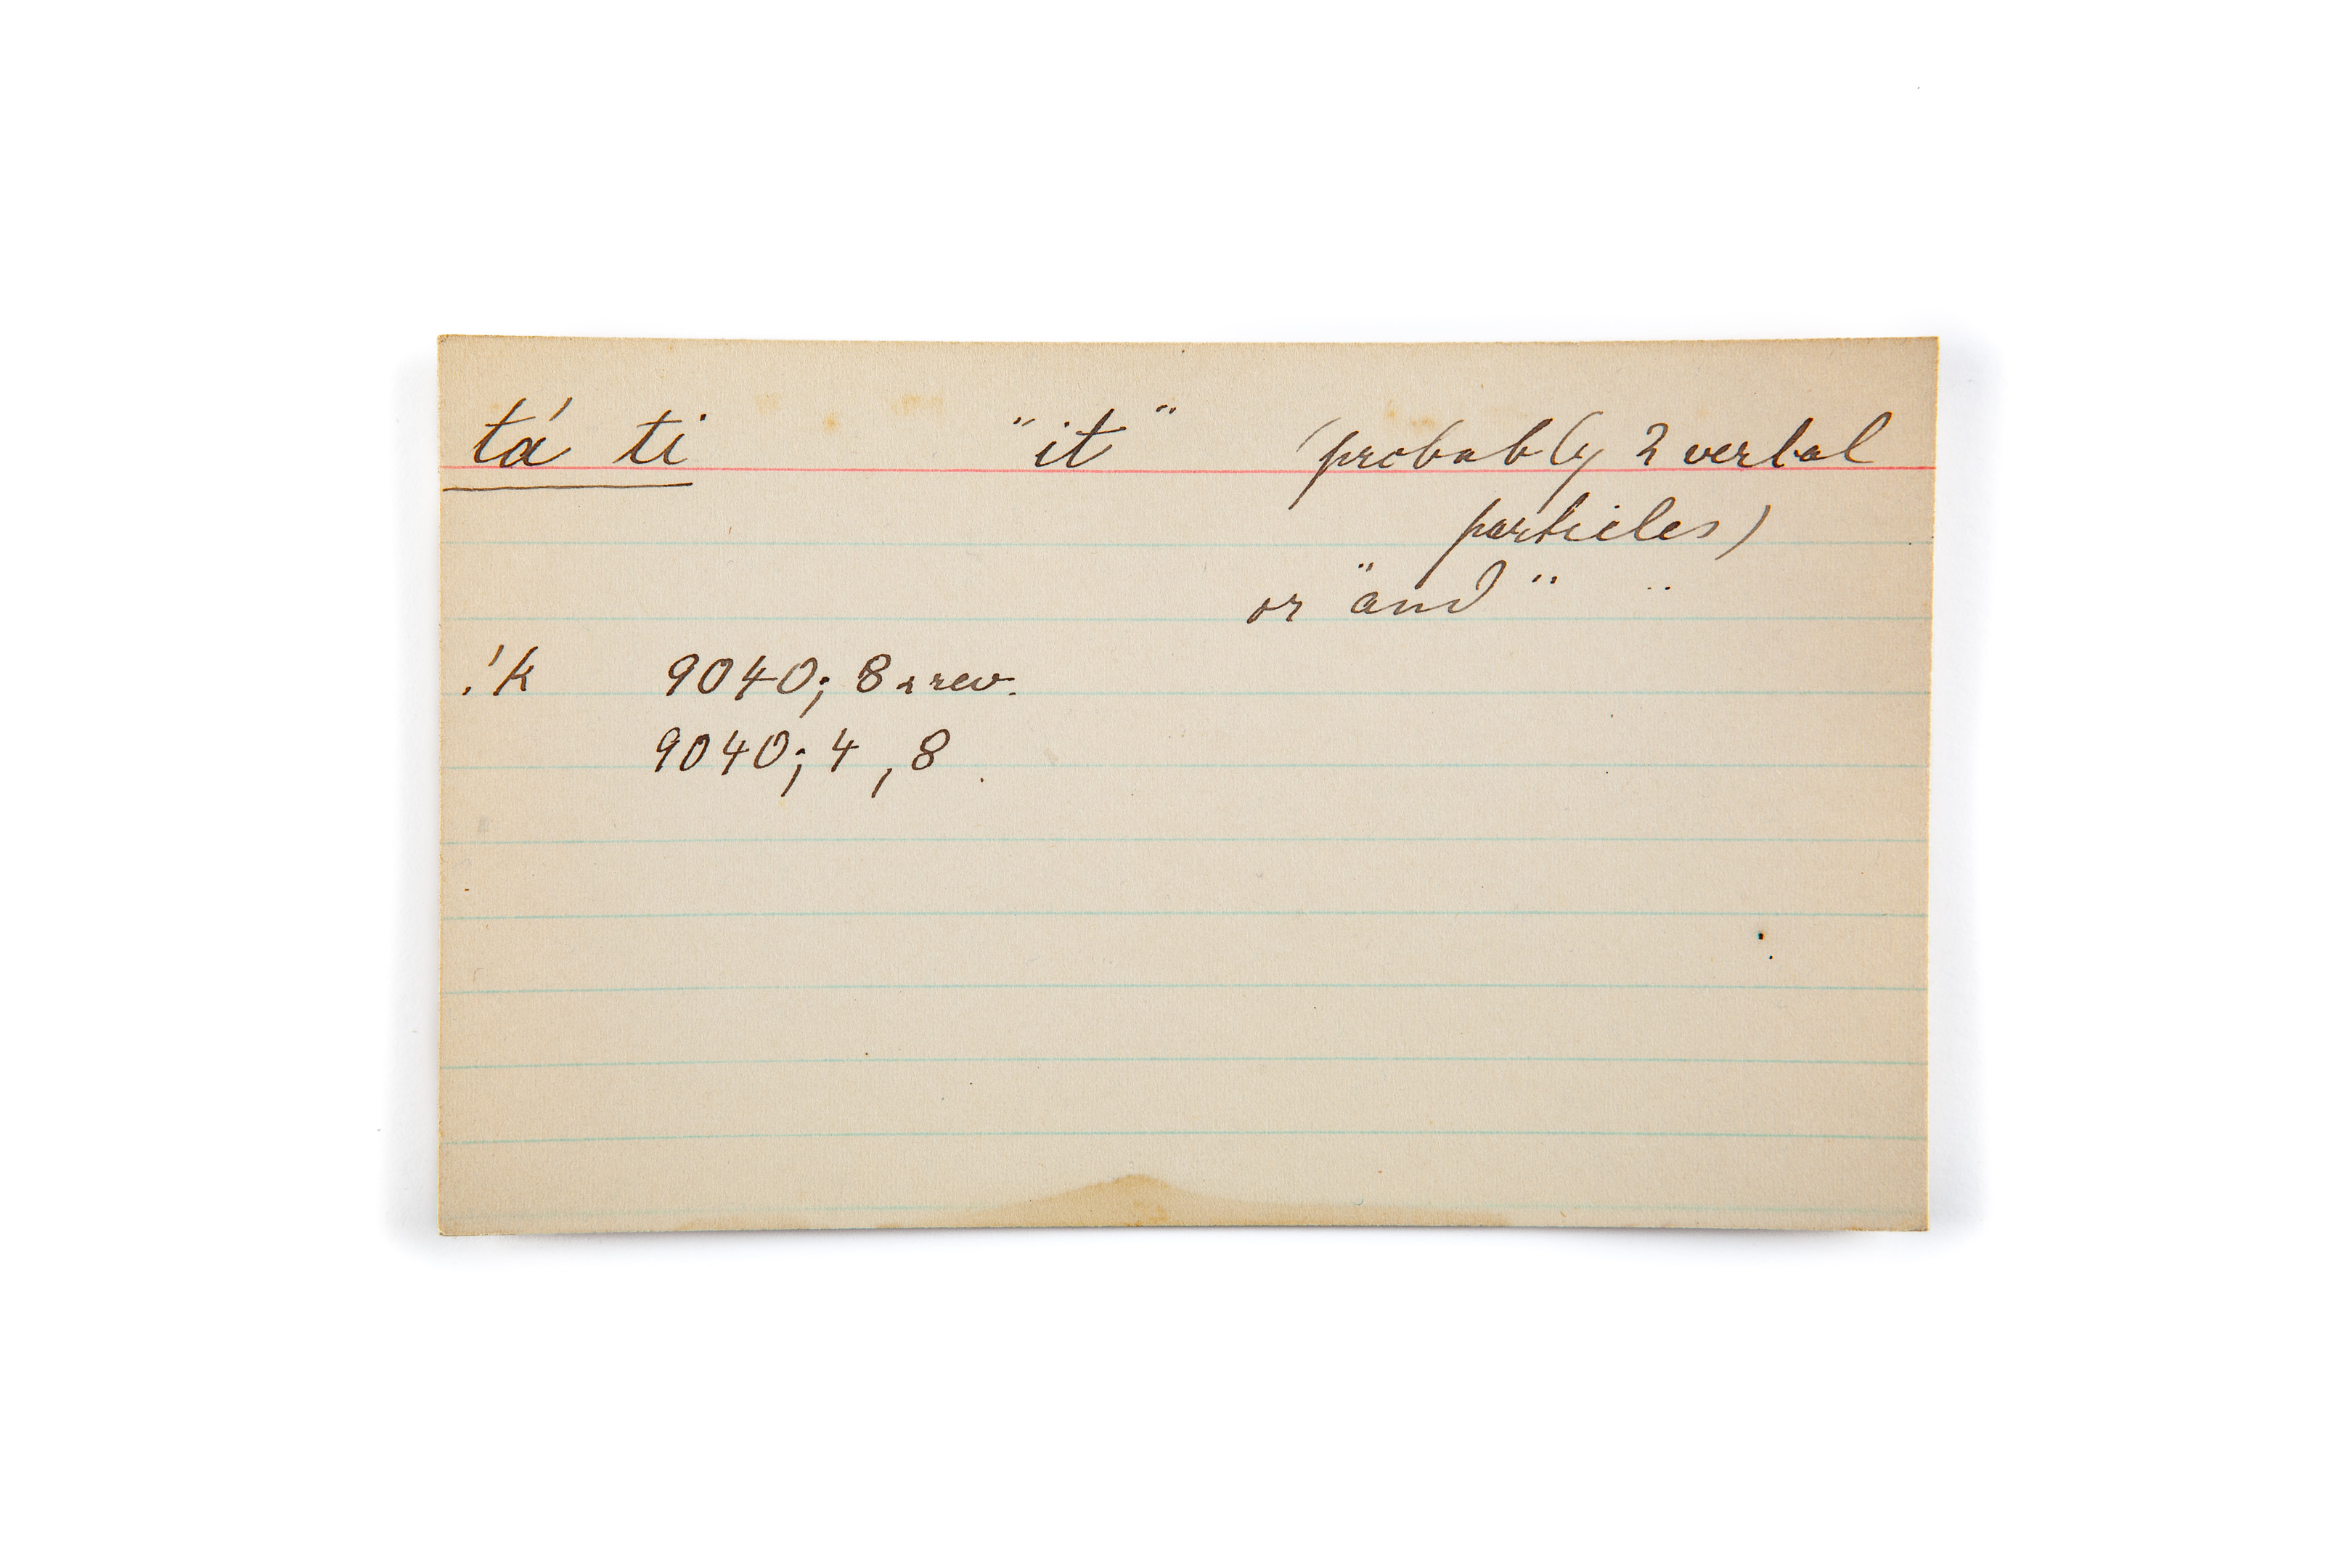 tá ti "it" (probably 2 verbal
particles)
or "and"
!k 9040; 8 rev.
9040; 4, 8.